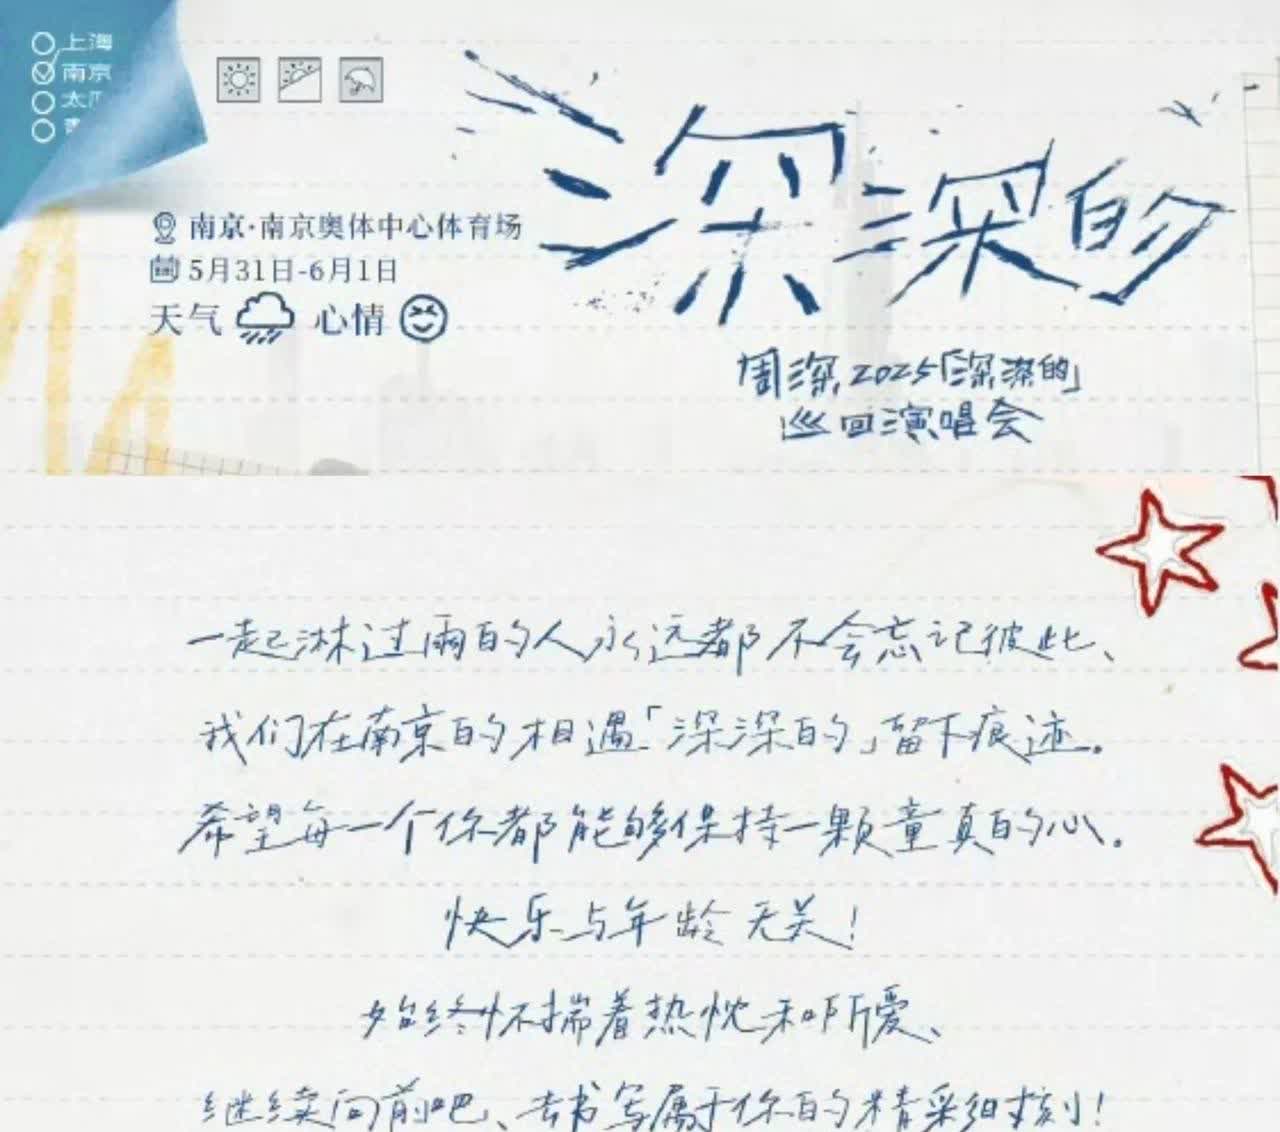 上海
南京
太
南京·南京奥体中心体育场
5月31日-6月1日
天气 心情
深深的
周深2025「深深的」
巡回演唱会
一起淋过雨的人永远都不会忘记彼此、
我们在南京的相遇「深深的」留下痕迹。
希望每一个你都能够保持一颗童真的心。
快乐与年龄无关！
始终怀揣着热忱和所爱、
继续向前吧、去书写属于你的精彩细刻！